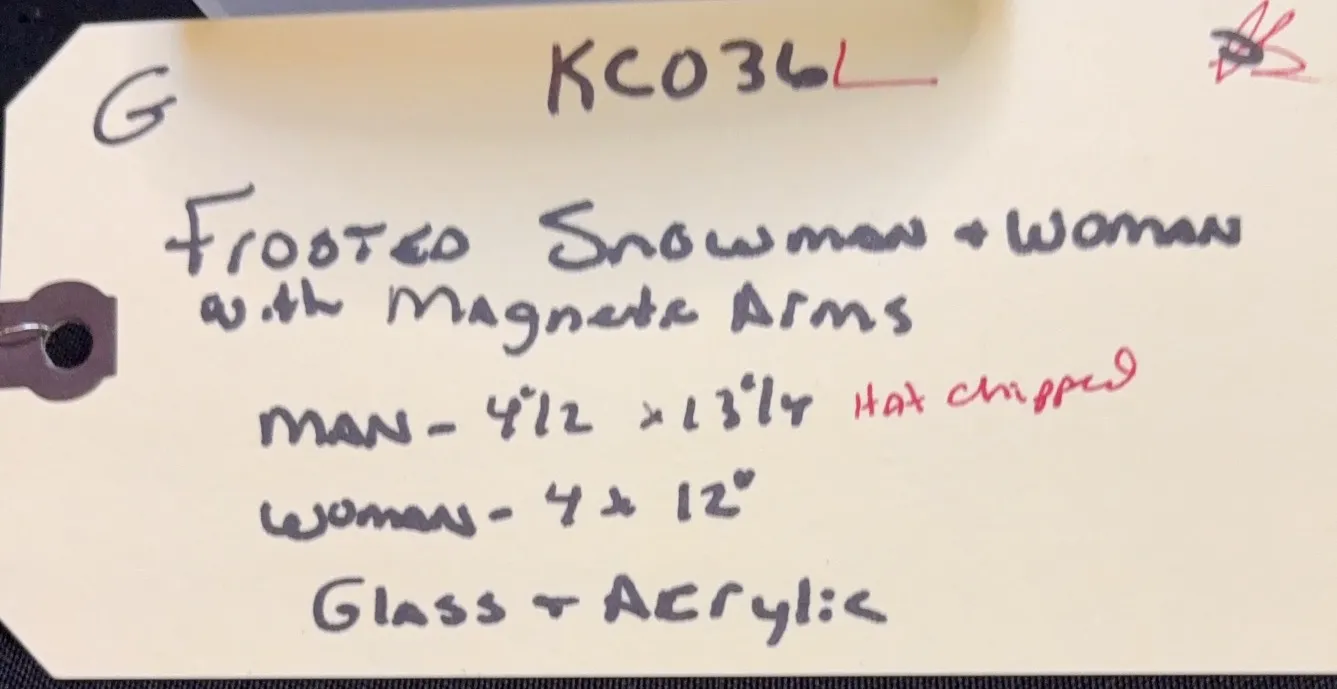 G KC036L
Frosted Snowman + Woman
with Magnetic Arms
Man - 4"1/2 x 13"1/4 Hat chipped
Woman - 4 x 12"
Glass + Acrylic